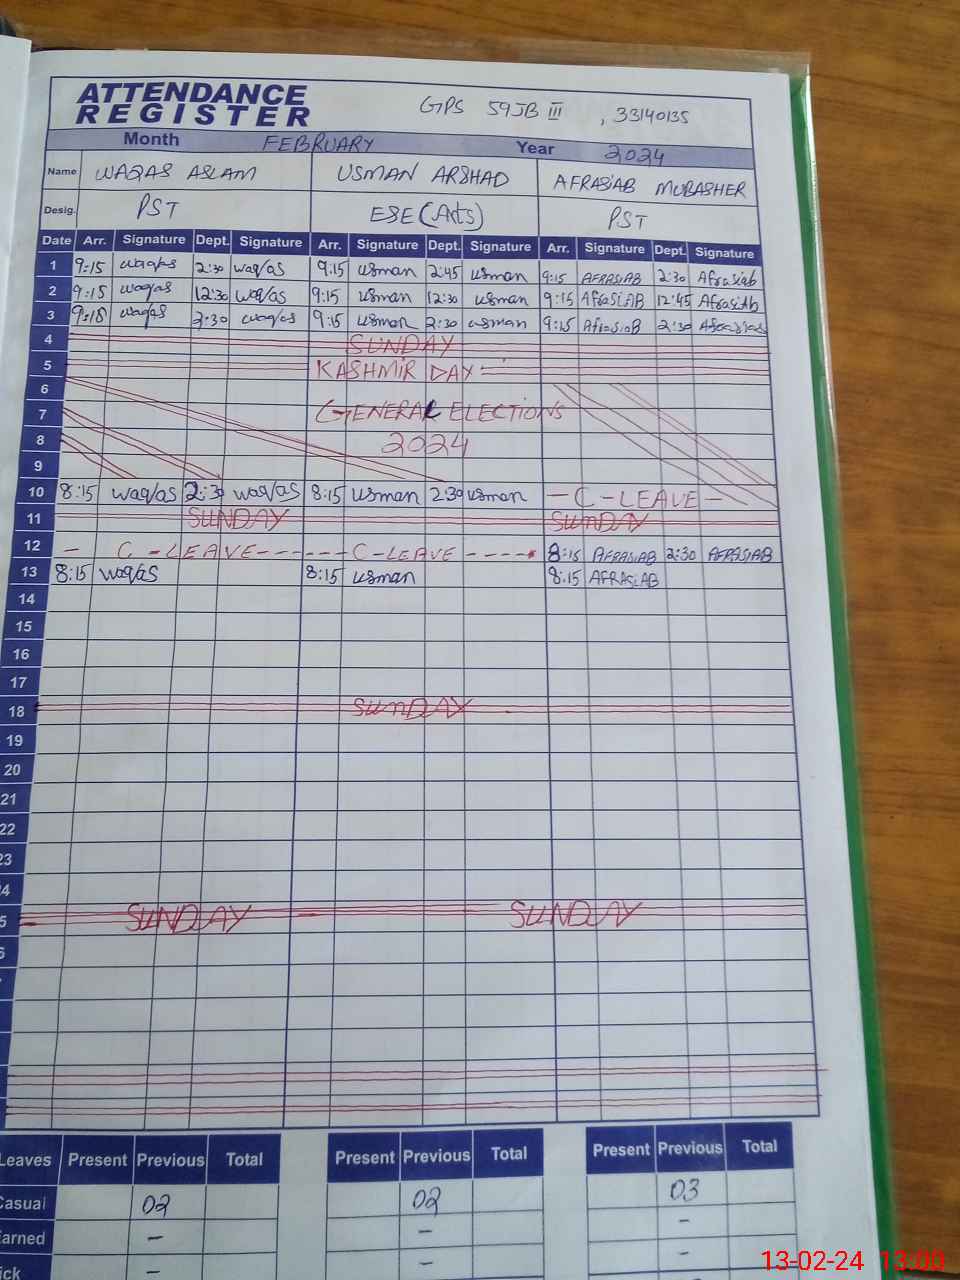 ATTENDANCE REGISTER GPS 59JB III , 33140135
Month FEBRUARY Year 2024
Name WAQAS ASLAM USMAN ARSHAD AFRASIAB MUBASHER
Desig. PST ESE (Arts) PST
Date Arr. Signature Dept. Signature Arr. Signature Dept. Signature Arr. Signature Dept. Signature
1 9:15 waqas 2:30 waqas 9:15 usman 2:45 usman 9:15 AFRASIAB 2:30 Afrasiab
2 9:15 waqas 12:30 waqas 9:15 usman 12:30 usman 9:15 AfraSiAB 12:45 AfrasiAb
3 9:15 waqas 2:30 waqas 9:15 usman 2:30 usman 9:15 AfrasiaB 2:30 Afrasiab
4 SUNDAY
5 KASHMIR DAY
6
7 GENERAL ELECTIONS
8 2024
9
10 8:15 waqas 2:30 waqas 8:15 usman 2:30 usman - C-LEAVE -
11 SUNDAY SUNDAY
12 - C-LEAVE - - - - - - C-LEAVE - - - - 8:15 AFRASIAB 2:30 AFRASIAB
13 8:15 waqas 8:15 usman 8:15 AFRASIAB
14
15
16
17
18 SUNDAY
19
20
21
22
23
4
5 SUNDAY - SUNDAY
6
Leaves Present Previous Total Present Previous Total Present Previous Total
Casual 02 02 03
arned - - -
ick - - -
13-02-24 13:00